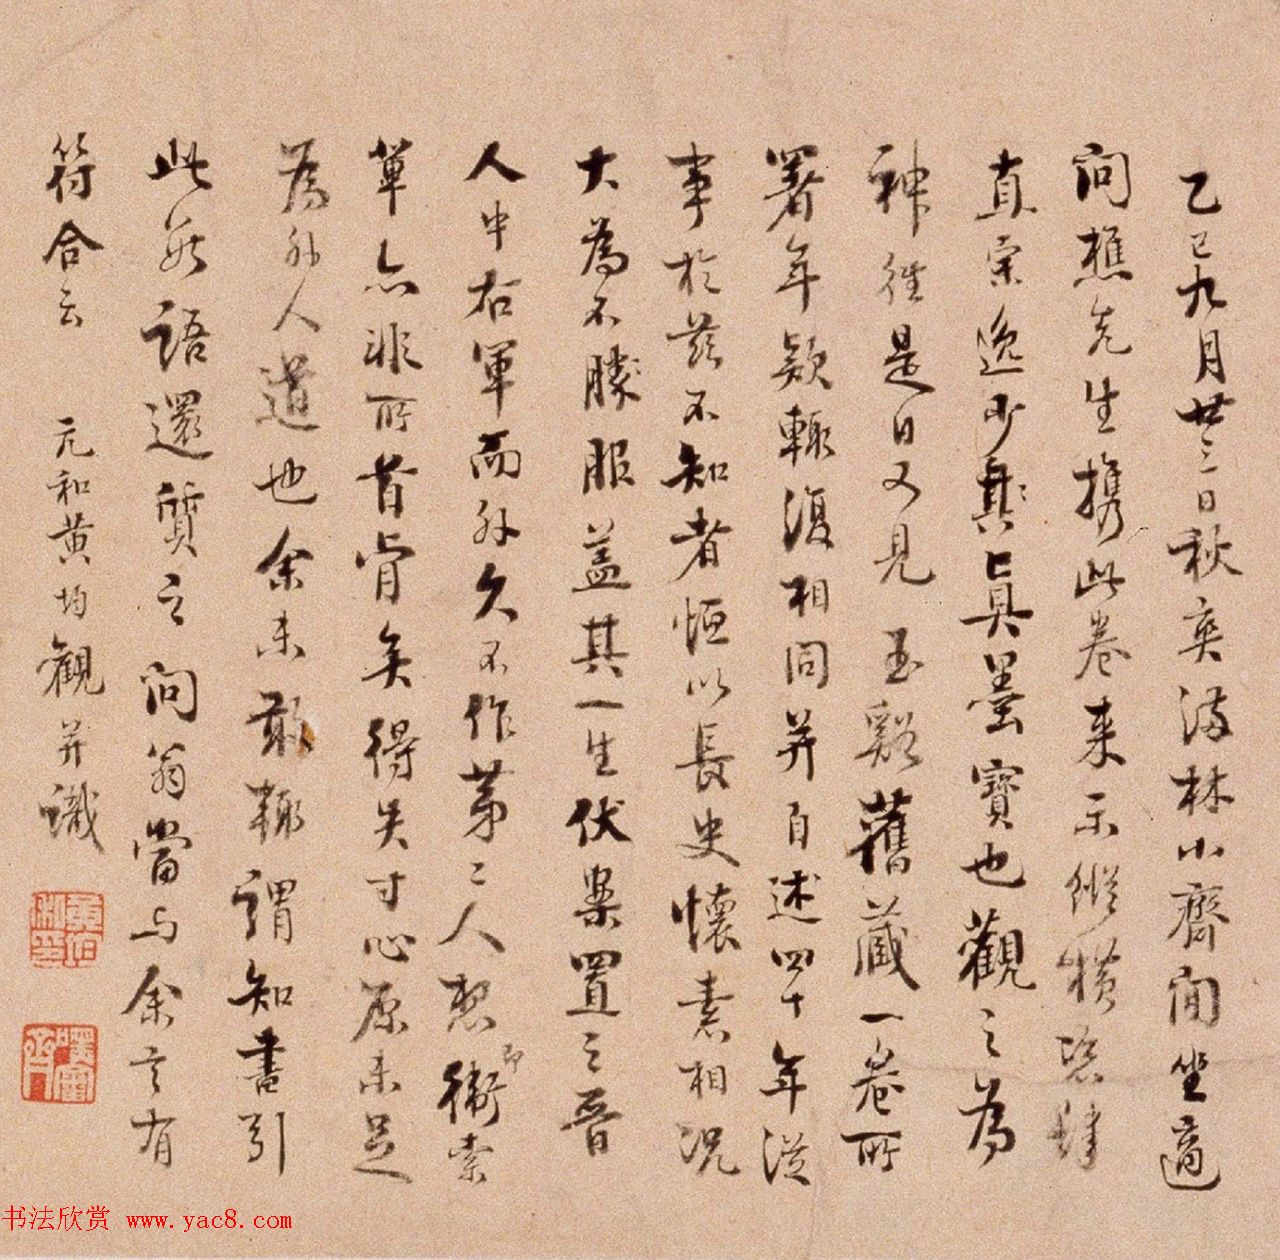 乙巳九月廿三日秋爽満林小齋閒坐適
问樵先生攜此卷来示縱横恣肆
直宗逸少真墨寶也觀之為
神往是日又見玉谿舊藏一卷所
署年款輙復相同并自述四十年從
事於茲不知者恒以長史懷素相況
大為不滕服蓋其一生伏案置之晉
人中右軍而外久不作苐二人想即衛索
草亦非所首肯矣得失寸心原未足
為外人道也余未敢輙謂知書引
此語還質之问翁當与余言有
符合云 元和黄均觀并識
书法欣赏 www.yac8.com